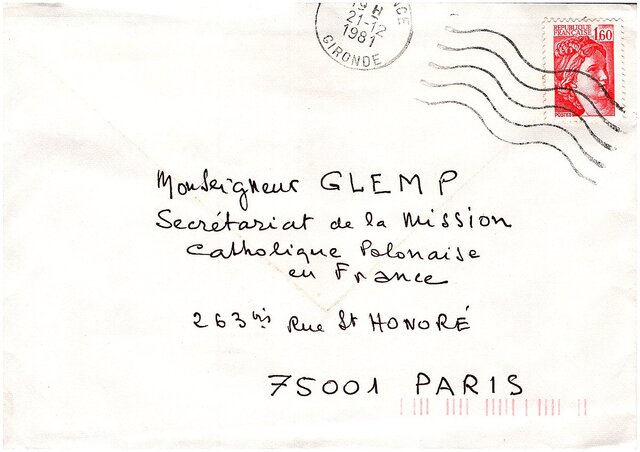 19 H
21-12
1981
GIRONDE
REPUBLIQUE
FRANÇAISE
1,60
POSTES
Monseigneur GLEMP
Secrétariat de la Mission
Catholique Polonaise
en France
263 bis Rue St HONORÉ
75001 PARIS